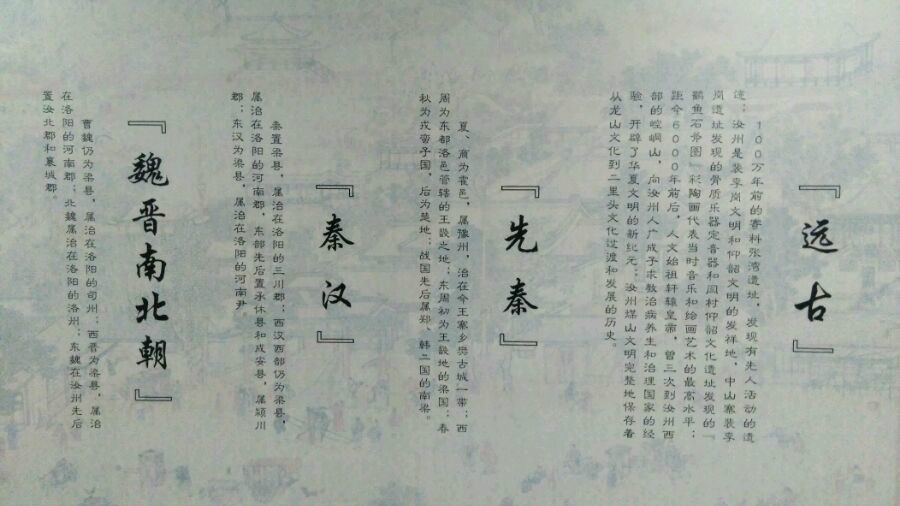 『远古』
100万年前的寄料张湾遗址，发现有先人活动的遗
迹；汝州是裴李岗文明和仰韶文明的发祥地，中山寨裴李
岗遗址发现的骨质乐器定音器和阎村仰韶文化遗址发现的『
鹳鱼石斧图』彩陶画代表当时音乐和绘画艺术的最高水平；
距今6000年前后，人文始祖轩辕皇帝，曾三次到汝州西
部的崆峒山，向汝州人广成子求教治病养生和治理国家的经
验，开辟了华夏文明的新纪元；汝州煤山文明完整地保存着
从龙山文化到二里头文化过渡和发展的历史。
『先秦』
夏、商为霍邑，属豫州，治在今王寨乡樊古城一带；西
周为东都洛邑管辖的王畿之地；东周初为王畿地的梁国；春
秋为戎蛮子国，后为楚地；战国先后属郑、韩二国的南梁。
『秦汉』
秦置梁县，属治在洛阳的三川郡；西汉西部仍为梁县，
属治在洛阳的河南郡，东部先后置承休县和成安县，属颍川
郡；东汉为梁县，属治在洛阳的河南尹
『魏晋南北朝』
曹魏仍为梁县，属治在洛阳的司州；西晋为梁县，属治
在洛阳的河南郡；北魏属治在洛阳的洛州；东魏在汝州先后
置汝北郡和襄城郡。